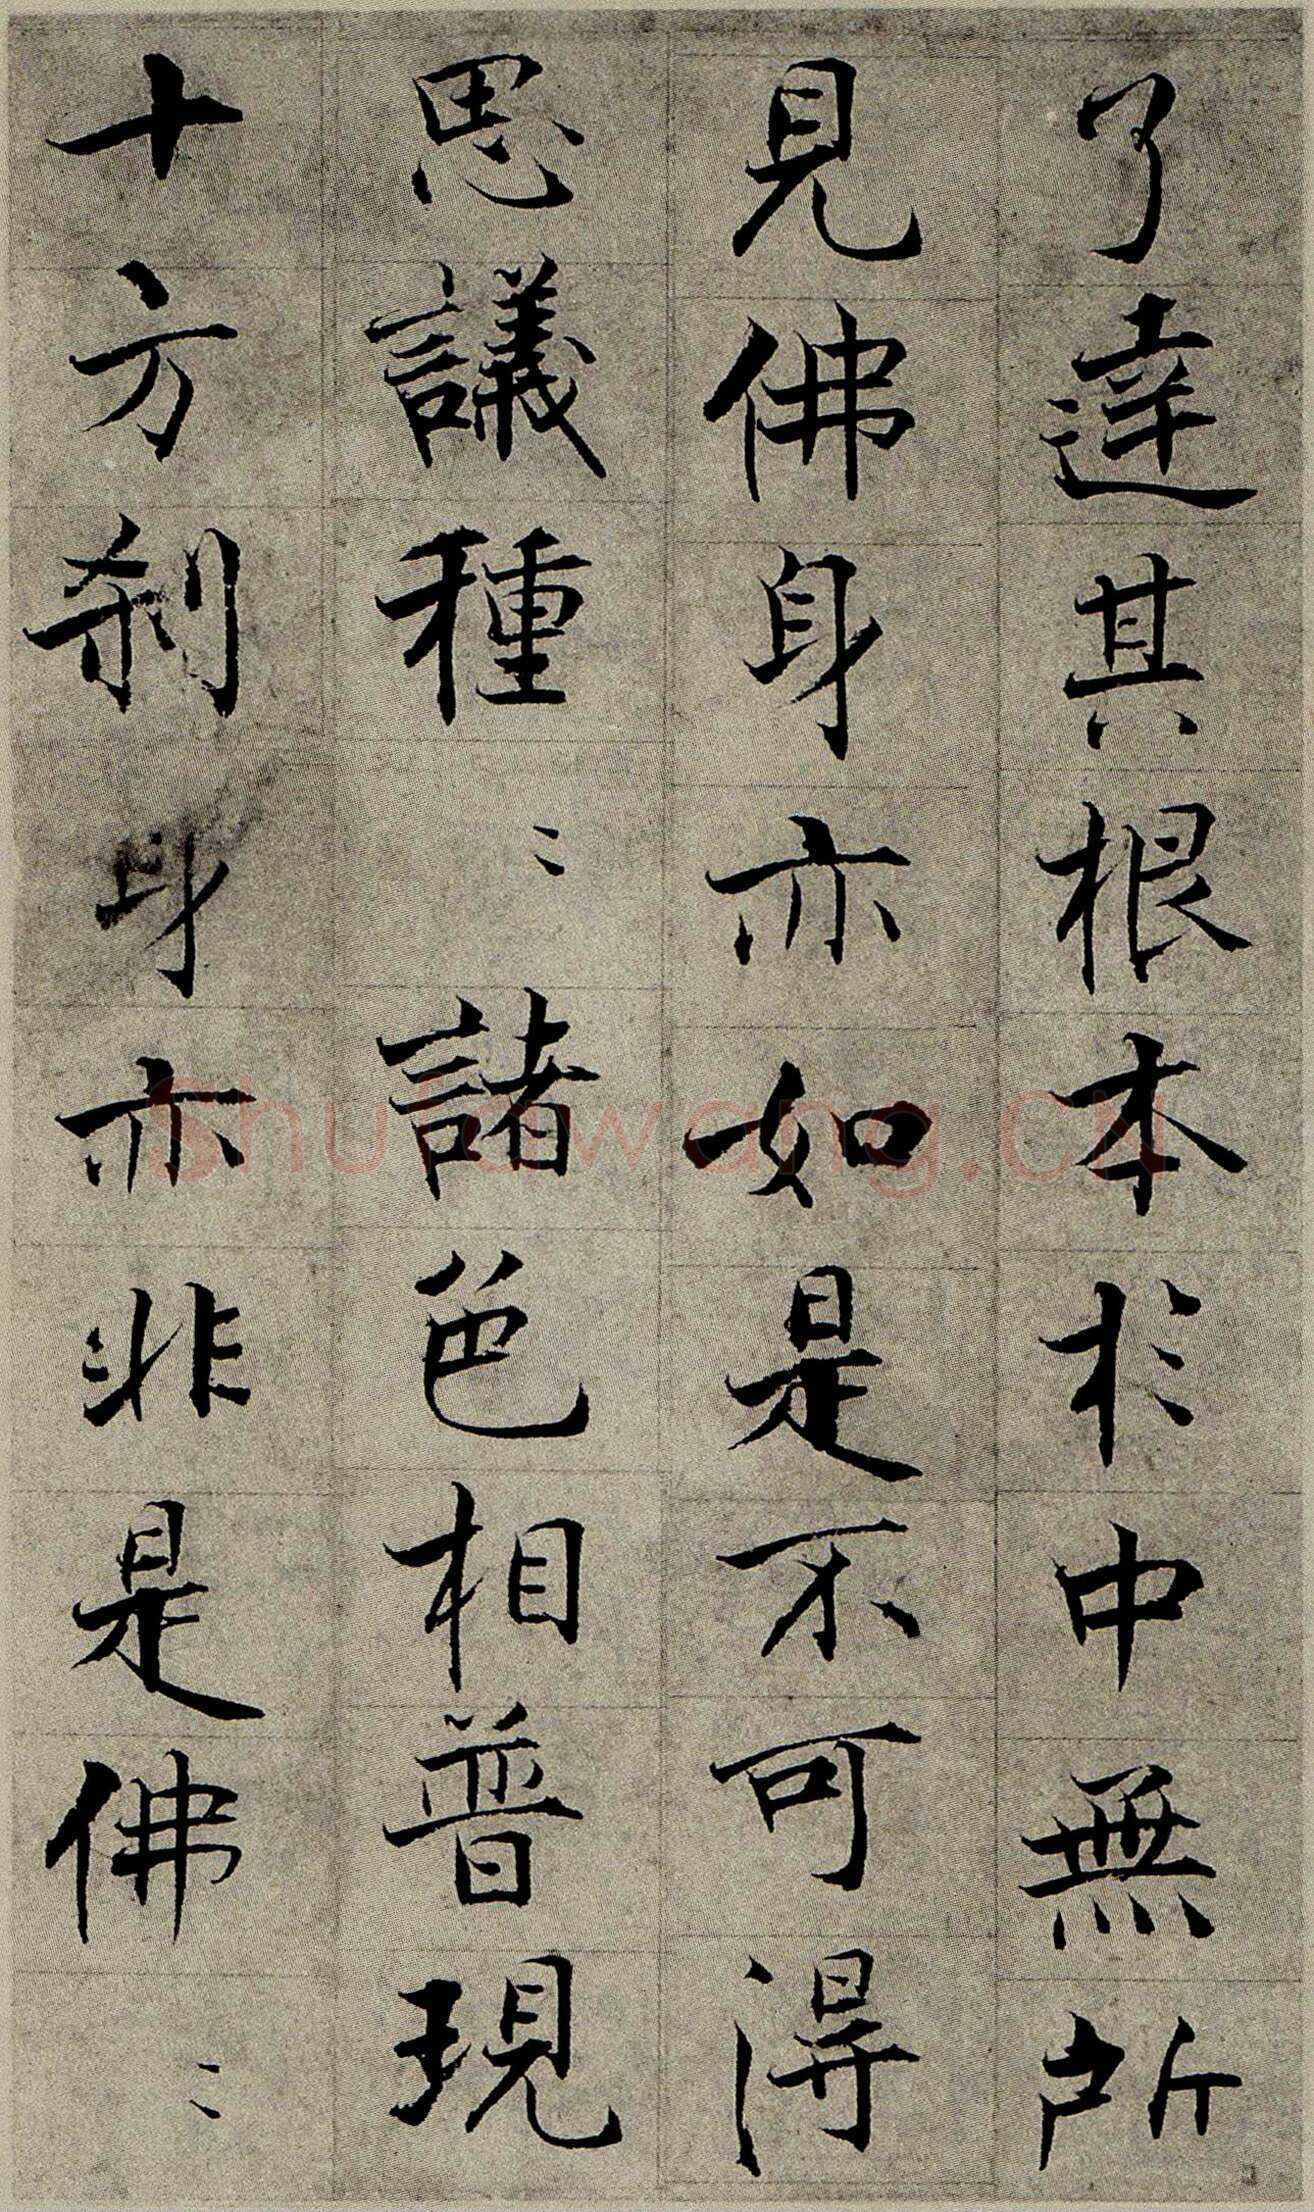 了達其根本於中無所
見佛身亦如是不可得
思議種〻諸色相普現
十方刹身亦非是佛〻
Shufawang.CN